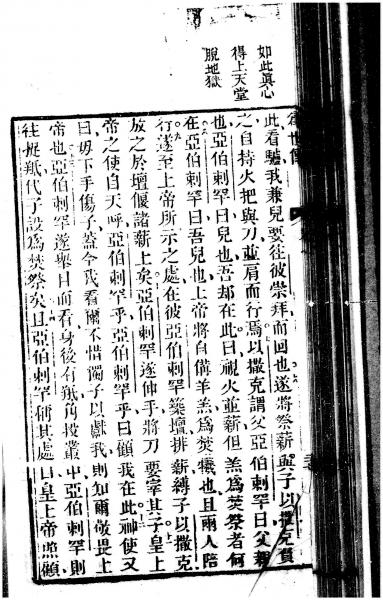 如此真心
得上天堂
脫地獄
此看驢我兼兒要往彼崇拜而回也遂將祭薪與子以撒克負
之自持火把與刀並肩而行焉以撒克謂父亞伯剌罕曰父親
也亞伯剌罕曰兒也吾却在此曰視火並薪但羔爲焚祭者何
在亞伯剌罕曰吾兒也上帝將自備羊羔爲焚犧也且兩人陪
行遂至上帝所示之處在彼亞伯剌罕築壇排薪縛子以撒克
放之於壇偃諸薪上矣亞伯剌罕遂伸手將刀要宰其子皇上
帝之使自天呼亞伯剌罕乎亞伯剌罕乎曰顧我在此神使又
曰毋下手傷子蓋今我看爾不惜獨子以獻我則知爾敬畏上
帝也亞伯剌罕遂舉目而看身後有羝角投叢中亞伯剌罕則
往捉羝代了設爲焚祭矣且亞伯剌罕稱其處曰皇上帝照顧